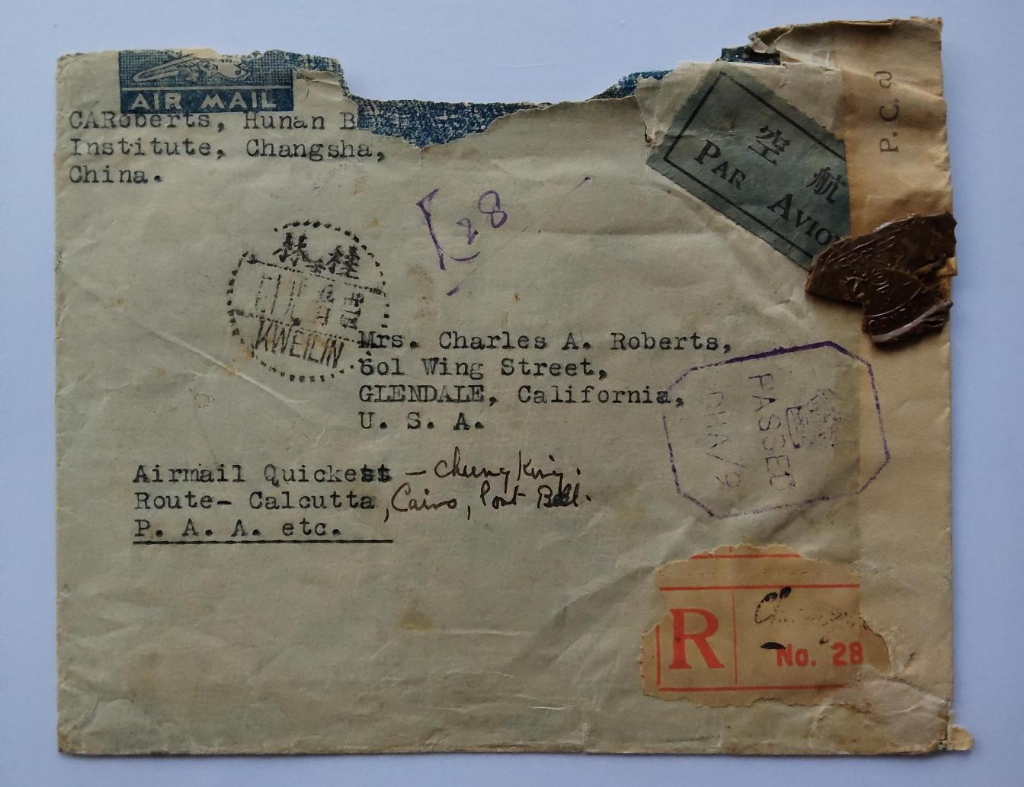 AIR MAIL
CARoberts, Hunan B
Institute, Changsha,
China.
空航
PAR AVIO
P.C.
28
林桂
KWEILIN
Mrs. Charles A. Roberts,
601 Wing Street,
GLENDALE, California,
U. S. A.
PASSED
DHA/9
Airmail Quickest - Chungking.
Route- Calcutta, Cairo, Port Bell.
P. A. A. etc.
R
No. 28